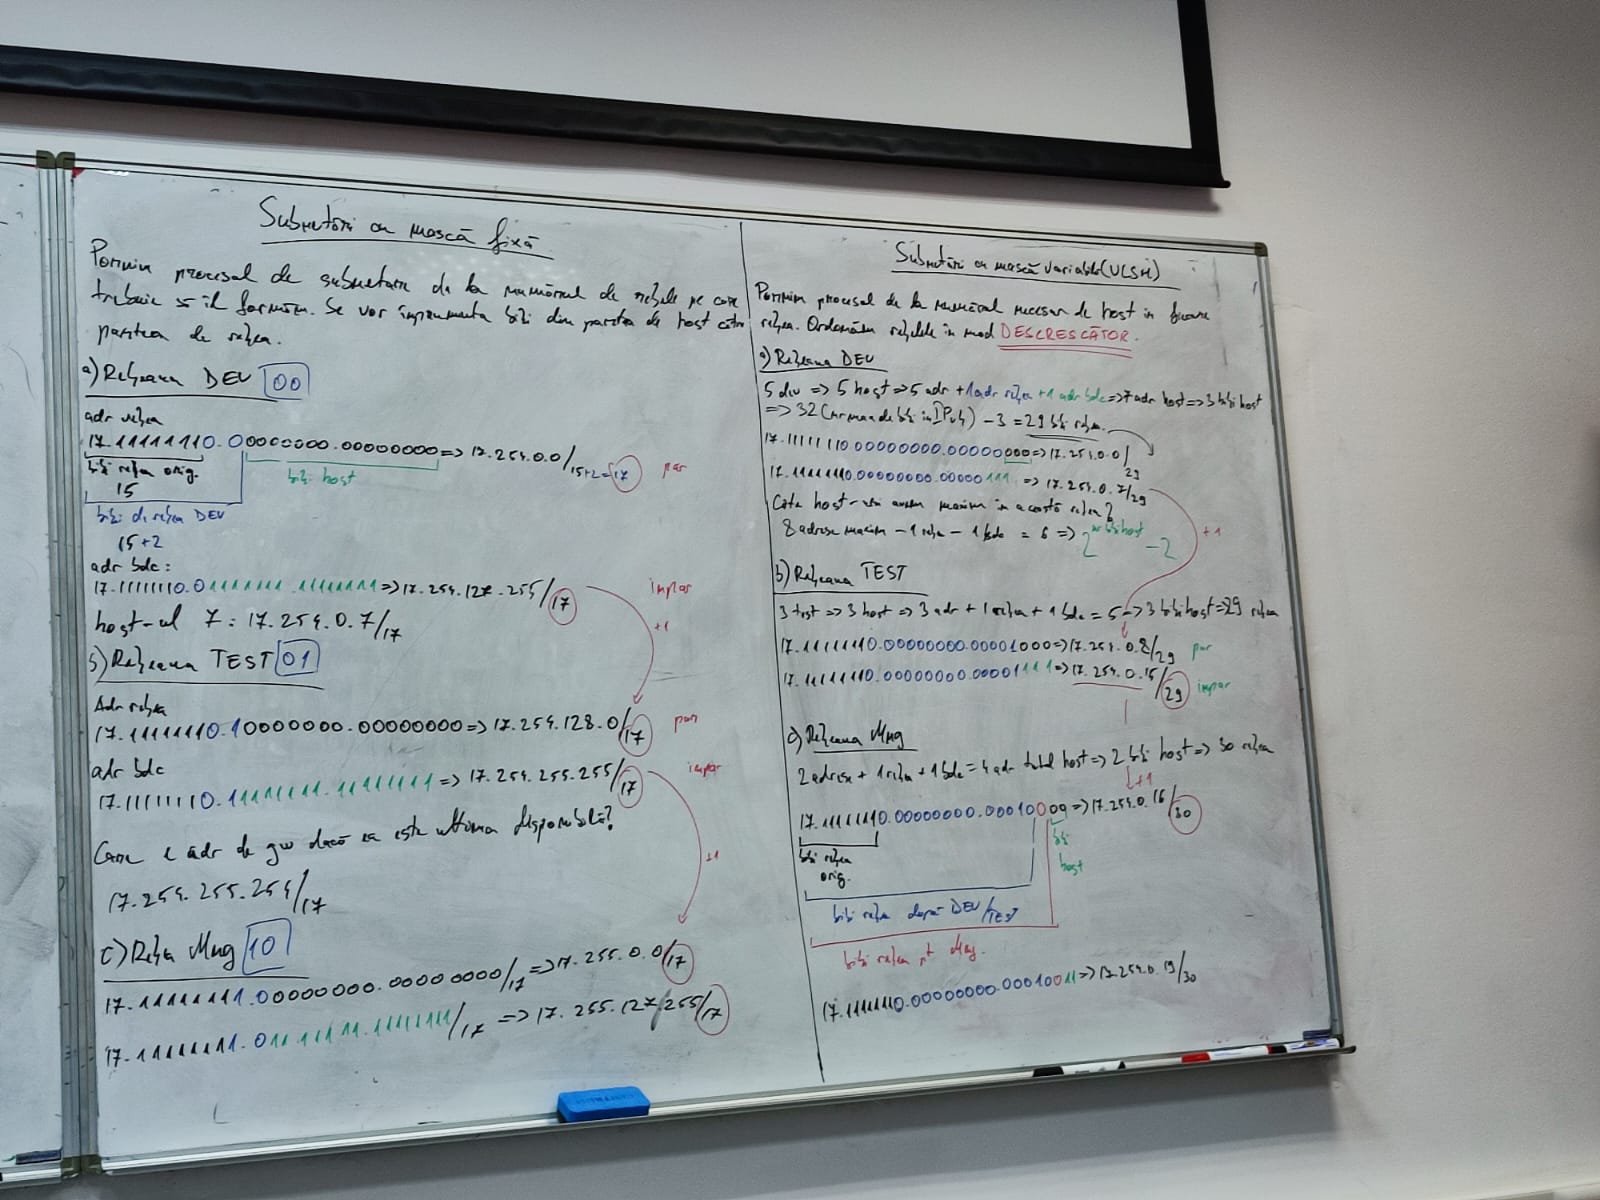 Subnetări cu mască fixă
Pornim procesul de subnetare de la numărul de rețele pe care
trebuie să îl formăm. Se vor împrumuta biți din partea de host către
partea de rețea.
a) Rețeaua DEV 00
adr rețea
17.11111110.00000000.00000000 => 17.254.0.0/15+2=17 par
biți rețea orig. biți host
15
biți de rețea DEV
15+2
adr bdc:
17.11111110.01111111.11111111 => 17.254.127.255/17 impar
+1
host-ul 7: 17.254.0.7/17
b) Rețeaua TEST 01
Adr rețea
17.11111110.10000000.00000000 => 17.254.128.0/17 par
adr bdc
17.11111110.11111111.11111111 => 17.254.255.255/17 impar
Care e adr de gw dacă ea este ultima disponibilă?
+1
17.254.255.254/17
c) Rețea Mng 10
17.11111111.00000000.00000000/17 => 17.255.0.0/17
17.11111111.01111111.11111111/17 => 17.255.127.255/17
Subnetări cu mască variabilă (VLSM)
Pornim procesul de la numărul necesar de host în fiecare
rețea. Ordonăm rețelele în mod DESCRESCĂTOR.
a) Rețeaua DEV
5 dev => 5 host => 5 adr + 1 adr rețea + 1 adr bdc => 7 adr host => 3 biți host
=> 32 (nr max de biți în IPv4) - 3 = 29 biți rețea.
17.11111110.00000000.00000000 => 17.254.0.0/29
17.11111110.00000000.00000111 => 17.254.0.7/29
Câte host-uri avem maxim în această rețea?
8 adrese maxim - 1 rețea - 1 bdc = 6 => 2^nr biți host - 2
+1
b) Rețeaua TEST
3 test => 3 host => 3 adr + 1 rețea + 1 bdc = 5 => 3 biți host => 29 rețea
17.11111110.00000000.00001000 => 17.254.0.8/29 par
17.11111110.00000000.00001111 => 17.254.0.15/29 impar
c) Rețeaua Mng
2 adrese + 1 rețea + 1 bdc = 4 adr total host => 2 biți host => 30 rețea
+1
17.11111110.00000000.00010000 => 17.254.0.16/30
biți rețea orig. biți host
biți rețea după DEV/TEST
biți rețea pt Mng.
17.11111110.00000000.00010011 => 17.254.0.19/30